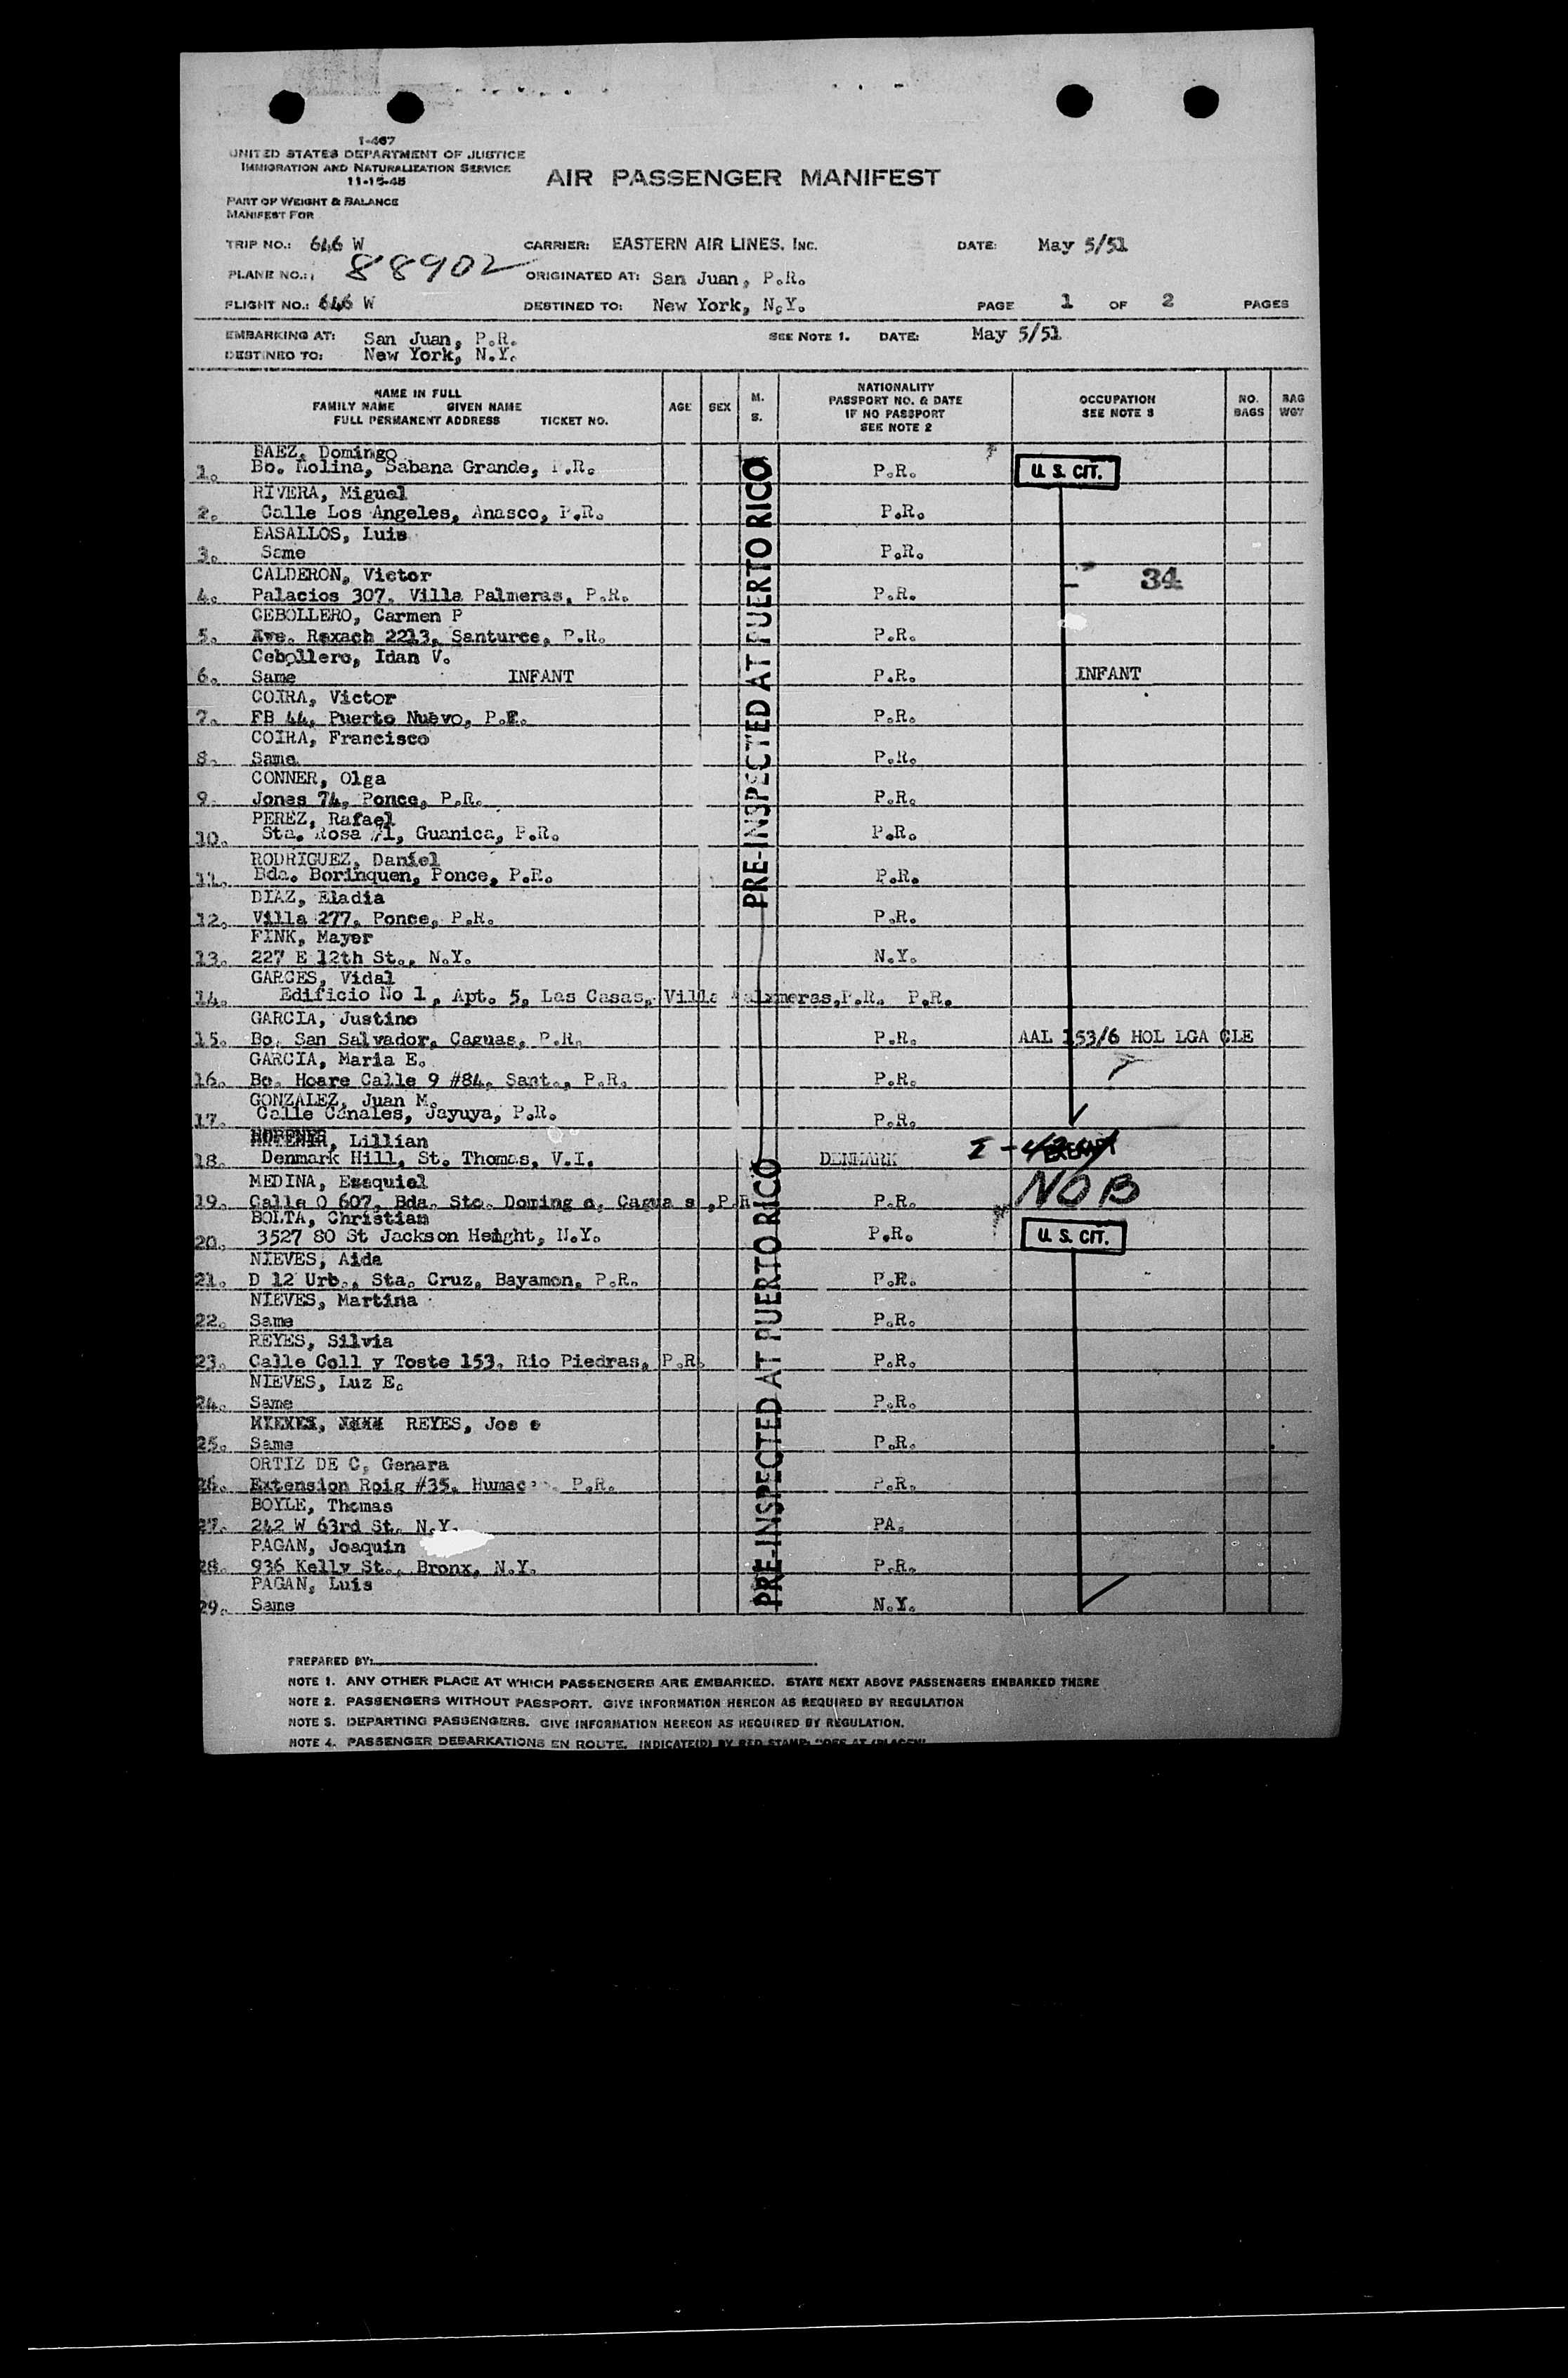 I-467
UNITED STATES DEPARTMENT OF JUSTICE
IMMIGRATION AND NATURALIZATION SERVICE
11-15-45
AIR PASSENGER MANIFEST
PART OF WEIGHT & BALANCE
MANIFEST FOR
TRIP NO.: 646 W CARRIER: EASTERN AIR LINES, INC. DATE: May 5/51
PLANE NO.: 88902 ORIGINATED AT: San Juan, P.R.
FLIGHT NO.: 646 W DESTINED TO: New York, N.Y. PAGE 1 OF 2 PAGES
EMBARKING AT: San Juan, P.R. SEE NOTE 1. DATE: May 5/51
DESTINED TO: New York, N.Y.
NAME IN FULL
FAMILY NAME GIVEN NAME
FULL PERMANENT ADDRESS TICKET NO.
AGE
SEX
M.
S.
NATIONALITY
PASSPORT NO. & DATE
IF NO PASSPORT
SEE NOTE 2
OCCUPATION
SEE NOTE 3
NO.
BAGS
BAG
WGT
BAEZ, Domingo
1. Bo. Molina, Sabana Grande, P.R. P.R. U. S. CIT.
RIVERA, Miguel
2. Calle Los Angeles, Anasco, P.R. P.R.
BASALLOS, Luis
3. Same P.R.
CALDERON, Victor
4. Palacios 307, Villa Palmeras, P.R. P.R. 34
CEBOLLERO, Carmen P
5. Ave. Rexach 2213, Santurce, P.R. P.R.
Cebollero, Idan V.
6. Same INFANT P.R. INFANT
COIRA, Victor
7. FB 44, Puerto Nuevo, P.R. P.R.
COIRA, Francisco
8. Same P.R.
CONNER, Olga
9. Jones 74, Ponce, P.R. P.R.
PEREZ, Rafael
10. Sta. Rosa #1, Guanica, P.R. P.R.
RODRIGUEZ, Daniel
11. Bda. Borinquen, Ponce, P.R. P.R.
DIAZ, Eladia
12. Villa 277, Ponce, P.R. P.R.
FINK, Mayer
13. 227 E 12th St., N.Y. N.Y.
GARCES, Vidal
14. Edificio No 1, Apt. 5, Las Casas, Villa Palmeras, P.R. P.R.
GARCIA, Justino
15. Bo. San Salvador, Caguas, P.R. P.R. AAL 153/6 HOL LGA CLE
GARCIA, Maria E.
16. Bo. Hoare Calle 9 #84, Sant., P.R. P.R.
GONZALEZ, Juan M.
17. Calle Canales, Jayuya, P.R. P.R.
Lillian
18. Denmark Hill, St. Thomas, V.I. DENMARK I-
MEDINA, Esequiel
19. Calle O 607, Bda. Sto. Doming o, Cagua s ,P.R P.R. NOB
BOLTA, Christian
20. 3527 80 St Jackson Height, N.Y. P.R. U. S. CIT.
NIEVES, Aida
21. D 12 Urb., Sta. Cruz, Bayamon, P.R. P.R.
NIEVES, Martina
22. Same P.R.
REYES, Silvia
23. Calle Coll y Toste 153, Rio Piedras, P.R. P.R.
NIEVES, Luz E.
24. Same P.R.
REYES, Jos e
25. Same P.R.
ORTIZ DE C, Genara
26. Extension Roig #35, Humac P.R. P.R.
BOYLE, Thomas
27. 242 W 63rd St. N.Y. PA.
PAGAN, Joaquin
28. 936 Kelly St., Bronx, N.Y. P.R.
PAGAN, Luis
29. Same N.Y.
PRE-INSPECTED AT PUERTO RICO
PRE-INSPECTED AT PUERTO RICO
PREPARED BY:
NOTE 1. ANY OTHER PLACE AT WHICH PASSENGERS ARE EMBARKED. STATE NEXT ABOVE PASSENGERS EMBARKED THERE
NOTE 2. PASSENGERS WITHOUT PASSPORT. GIVE INFORMATION HEREON AS REQUIRED BY REGULATION
NOTE 3. DEPARTING PASSENGERS. GIVE INFORMATION HEREON AS REQUIRED BY REGULATION.
NOTE 4. PASSENGER DEBARKATIONS EN ROUTE. INDICATE(D) BY RED STAMP: "OFF AT (PLACE)"